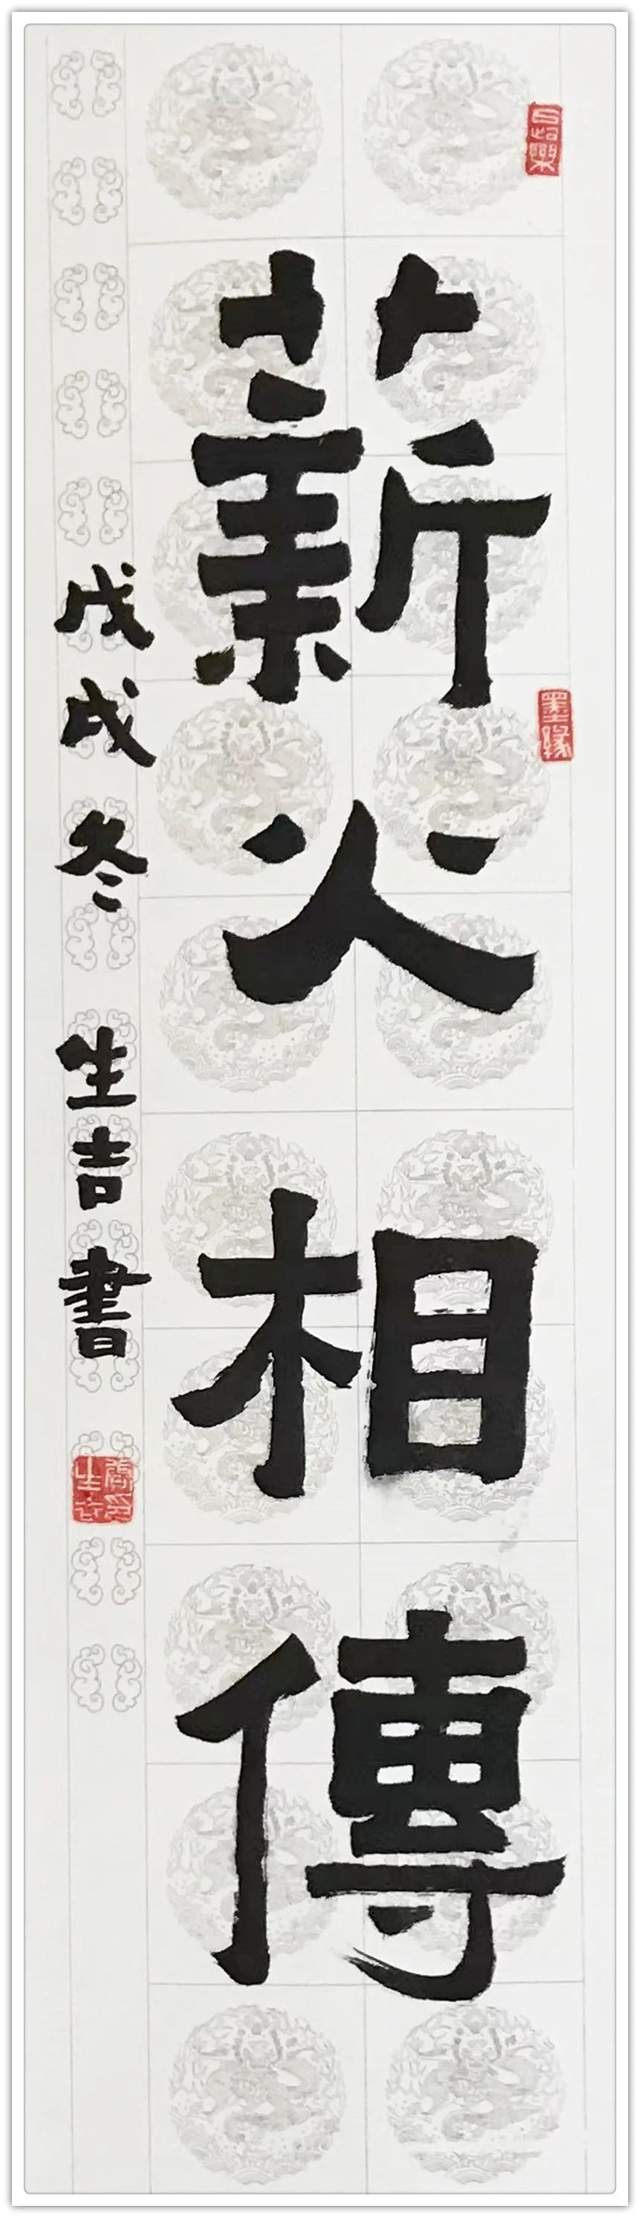 薪火相傳
戊戌冬 生吉書
墨緣